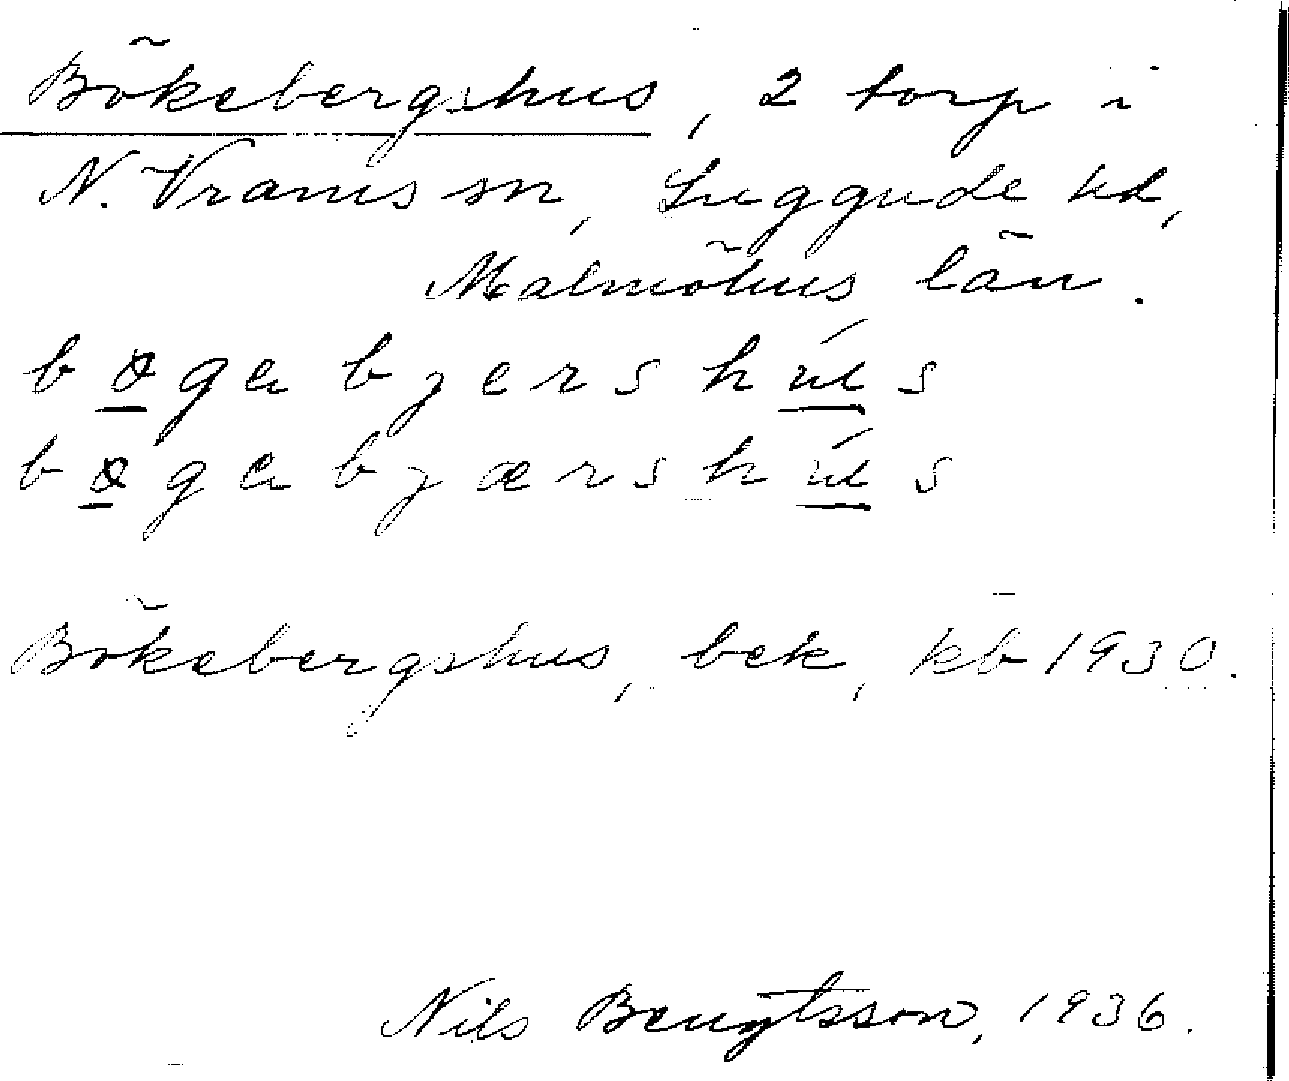 Bökebergshus, 2 torp i
N. Vrams sn, Luggude hd,
Malmöhus län.
bøgabjershús
bøgabjærshús
Bökebergshus, bek, kb 1930.
Nils Bengtsson, 1936.